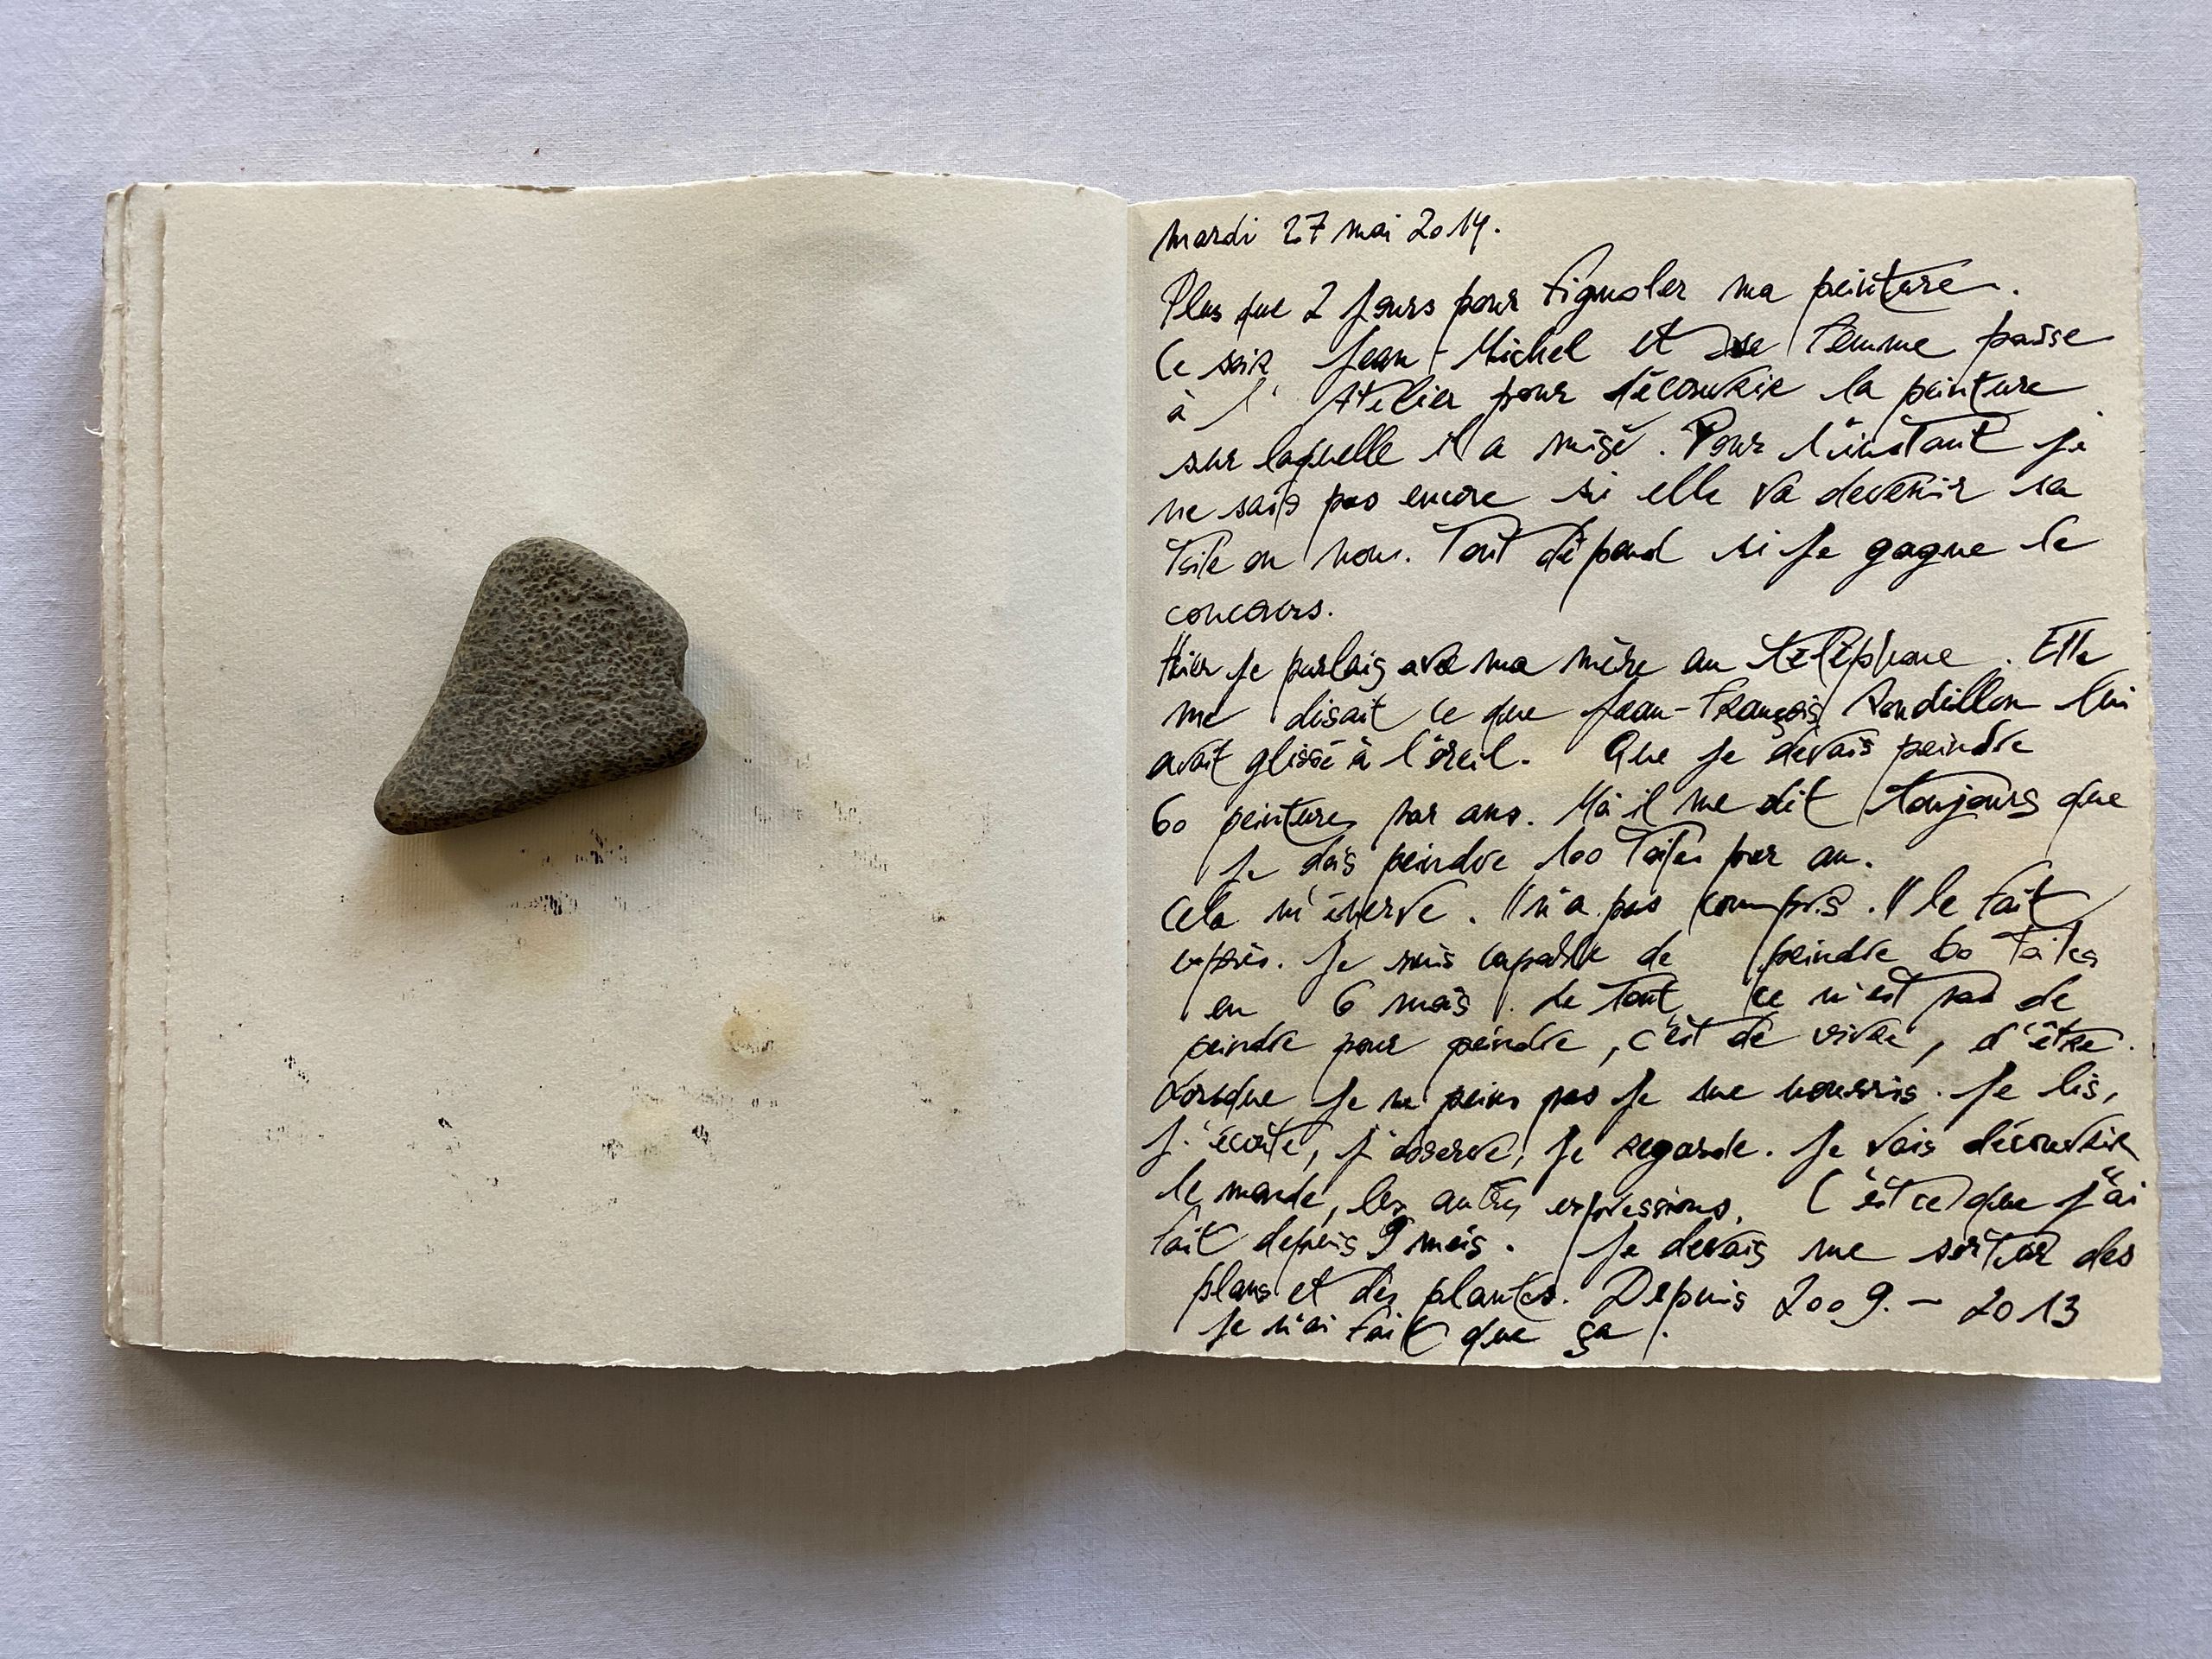 mardi 27 mai 2014.
Plus que 2 jours pour fignoler ma peinture.
Ce soir Jean-Michel et sa femme passe
à l'Atelier pour découvrir la peinture
sur laquelle il a misé. Pour l'instant je
ne sais pas encore si elle va devenir sa
toile ou non. Tout dépend si je gagne le
concours.
Hier je parlais avec ma mère au téléphone. Elle
me disait ce que Jean-François lui
avait glissé à l'oreil. Que je devais peindre
60 peintures par ans. Mà il me dit toujours que
je dois peindre 100 toiles par an.
Cela m'énerve. Il n'a pas compris. Il le fait
exprès. Je suis capable de peindre 60 toiles
en 6 mois. Le tout, ce n'est pas de
peindre pour peindre, c'est de vivre, d'être.
Lorsque je ne peins pas je me nourris. Je lis,
j'écoute, j'observe, je regarde. Je vais découvrir
le monde, les autres expressions. C'est ce que j'ai
fait depuis 9 mois. Je devais me sortir des
plans et des plantes. Depuis 2009. - 2013
je n'ai fait que ça.